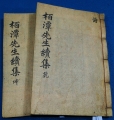 栢潭先生續集 乾
栢潭先生續集 坤